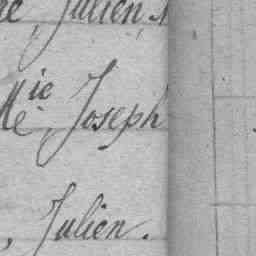 Julien
Mie Joseph
, Julien.